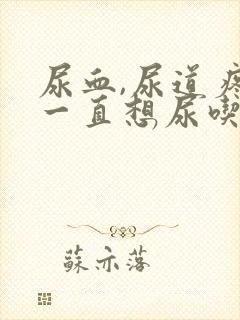 尿血,尿道疼
一直想尿喫
蘇亦落